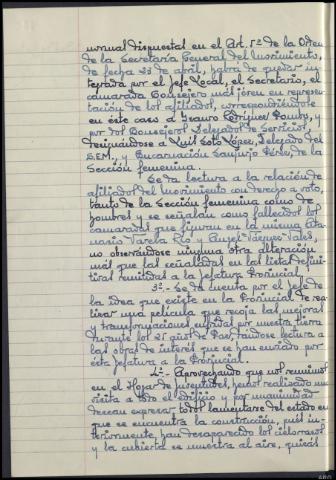 normal dispuestas en el Art. 5º de la Orden
de la Secretaría General del Movimiento,
de fecha 23 de abril, habrá de quedar in-
tegrada por el Jefe Local, el Secretario, el
camarada Consejero más jóven en represen-
tación de los afiliados, correspondiéndole
en este caso a Jenaro Rodríguez Pombo, y
por dos Consejeros Delegados de Servicios,
designándose a Luis Soto López, Delegado del
SEM, y Encarnación Sanjurjo Pérez, de la
Sección femenina.
Se da lectura a la relación de
afiliados del Movimiento con derecho a voto,
tanto de la Sección femenina como de
hombres y se señalan como fallecidos los
camaradas que figuran en la misma Ata-
nasio Varela Rio y Angel Vázquez Vales,
no observándose ninguna otra alteración
más que las señaladas en las listas defini-
tivas remitidas a la Jefatura Provincial.
3º.- Se da cuenta por el Jefe de
la idea que existe en la Provincial de rea-
lizar una película que recoja las mejoras
y transformaciones sufridas por nuestra tierra
durante los 25 años de Paz, dándose lectura a
las obras de interés que se han enviado por
esta Jefatura a la Provincial.
4º.- Aprovechando que nos reunimos
en el Hogar de Juventudes, hemos realizado una
visita a todo el edificio y por unanimidad
desean expresar todos lamentarse del estado en
que se encuentra la construcción, pués in-
teriormente, han desaparecido los cielorrasos
y la cubierta se muestra al aire, quizás